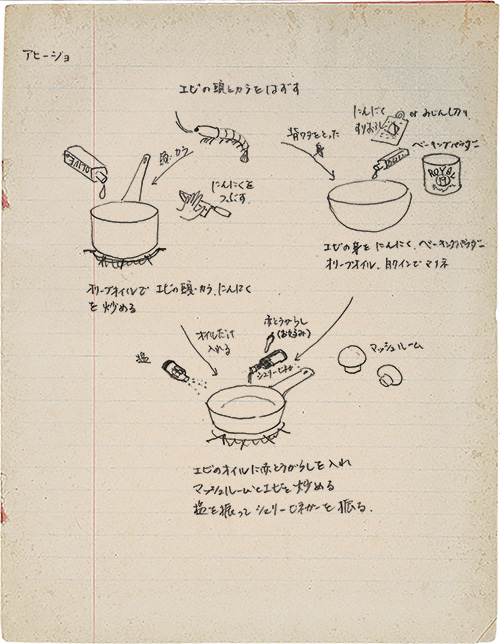 アヒージョ
エビの頭とカラをはずす
頭・カラ
にんにくを
つぶす
OLIVE
背ワタをとった
身
にんにく
すりおろし or みじん切り
ベーキングパウダー
ROYAL
エビの身をにんにく、ベーキングパウダー
オリーブオイル、白ワインでマリネ
オリーブオイルで エビの頭・カラ、にんにく
を炒める
オイルだけ
入れる
赤とうがらし
(お好み)
シェリービネガー
塩
マッシュルーム
エビのオイルに赤とうがらしを入れ
マッシュルームとエビを炒める
塩を振ってシェリービネガーを振る.